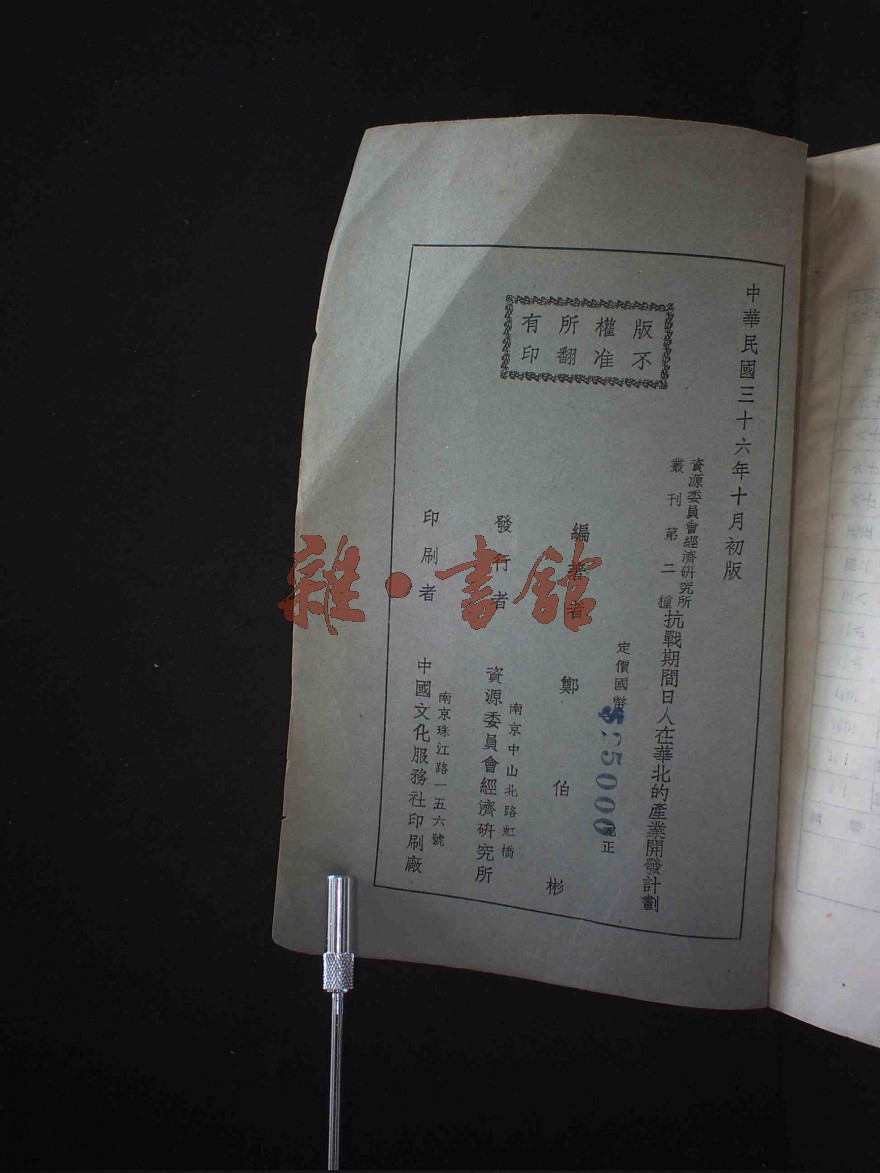 中華民國三十六年十月初版
資源委員會經濟研究所
叢刊第二種
抗戰期間日人在華北的產業開發計劃
版權所有
不准翻印
定價國幣
元正
編著者 鄭伯彬
發行者 資源委員會經濟研究所
南京中山北路虹橋
印刷者 中國文化服務社印刷廠
南京珠江路一五六號
雜·書館